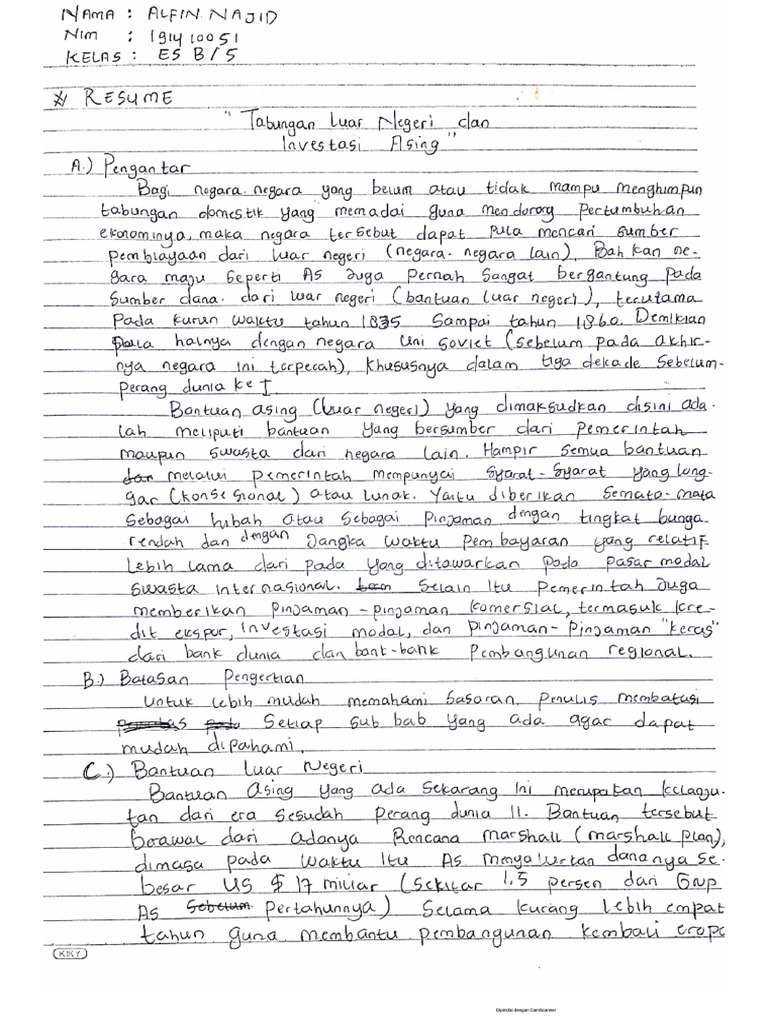 NAMA : ALFIN NAJID
NIM : 191410051
KELAS : ES B/5
RESUME
"Tabungan Luar Negeri dan
Investasi Asing"
A.) Pengantar
Bagi negara-negara yang belum atau tidak mampu menghimpun
tabungan domestik yang memadai guna mendorong Pertumbuhan
ekonominya, maka negara tersebut dapat pula mencari sumber
pembiayaan dari luar negeri (negara-negara lain), Bahkan ne-
gara maju seperti AS juga Pernah Sangat bergantung pada
Sumber dana. dari luar negeri (bantuan luar negeri), terutama
Pada kurun waktu tahun 1835 Sampai tahun 1860. Demikian
Pula halnya dengan negara Uni Soviet (sebelum pada akhir-
nya negara ini terpecah), khususnya dalam tiga dekade Sebelum-
perang dunia ke I
Bantuan asing (luar negeri) yang dimaksudkan disini ada-
lah meliputi bantuan yang bersumber dari Pemerintah
maupun swasta dari negara lain. Hampir semua bantuan
melalui pemerintah mempunyai Syarat-Syarat yang long-
gar (konsesional) atau lunak. Yaitu diberikan Semata-mata
Sebagai hibah atau Sebagai Pinjaman dengan tingkat bunga
rendah dan dengan Jangka waktu pembayaran yang relatif
Lebih lama dari pada yang ditawarkan pada pasar modal
swasta internasional. Selain itu pemerintah Juga
memberikan Pinjaman-pinjaman komersial, termasuk kre-
dit ekspor, investasi modal, dan Pinjaman-Pinjaman "keras"
dari bank dunia dan bank-bank Pembangunan regional.
B.) Batasan Pengertian
Untuk lebih mudah memahami sasaran, Penulis membatasi
Setiap sub bab yang ada agar dapat
mudah dipahami.
C.) Bantuan Luar Negeri
Bantuan Asing yang ada sekarang ini merupakan kelanju-
tan dari era sesudah perang dunia II. Bantuan tersebut
berawal dari adanya Rencana marshall (marshall plan),
dimasa pada waktu itu AS menyalurkan dananya se-
besar US $ 17 miliar (sekitar 1,5 persen dari GNP
AS Pertahunnya) Selama kurang lebih empat
tahun guna membantu pembangunan kembali eropa
KIKY
Dipindai dengan CamScanner